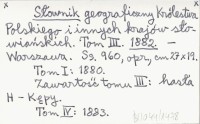 Słownik geograficzny Królestwa
Polskiego i innych krajów sło-
wiańskich. Tom III. 1882. –
Warszawa. Ss. 960, opr., cm 27 x 19.
Tom I: 1880.
Zawartość tomu III: hasła
H – Kępy.
Tom IV: 1883.